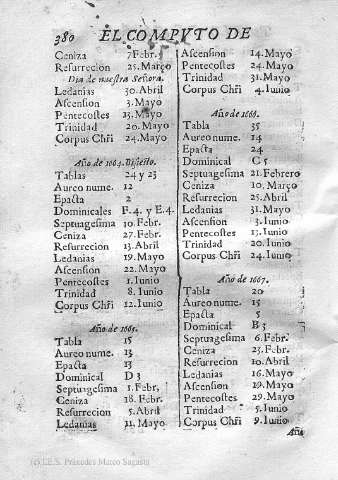 380 EL COMPVTO DE
Ceniza 7 Febr.
Resurrecion 25. Março
Dia de nuestra Señora.
Ledanias 30. Abril
Ascension 3. Mayo
Pentecostes 13. Mayo
Trinidad 20. Mayo
Corpus Chři 24. Mayo
Año de 1664. Bisiesto.
Tablas 24 y 23
Aureo nume. 12
Epacta 2
Dominicales F. 4. y E. 4.
Septuagesima 10. Febr.
Ceniza 27. Febr.
Resurrecion 13. Abril
Ledanias 19. Mayo
Ascension 22. Mayo
Pentecostes 1. Iunio
Trinidad 8. Iunio
Corpus Chři 12. Iunio
Año de 1665.
Tabla 15
Aureo nume. 13
Epacta 13
Dominical D 3
Septuagesima 1. Febr.
Ceniza 18. Febr.
Resurrecion 5. Abril
Ledanias 11. Mayo
Ascension 14. Mayo
Pentecostes 24. Mayo
Trinidad 31. Mayo
Corpus Chři 4. Iunio
Año de 1666.
Tabla 35
Aureo nume. 14
Epacta 24
Dominical C 5
Septuagesima 21. Febrero
Ceniza 10. Março
Resurrecion 25. Abril
Ledanias 31. Mayo
Ascension 3. Iunio
Pentecostes 13. Iunio
Trinidad 20. Iunio
Corpus Chři 24. Iunio
Año de 1667.
Tabla 20
Aureo nume. 15
Epacta 5
Dominical B 3
Septuagesima 6. Febr.
Ceniza 23. Febr.
Resurrecion 10. Abril
Ledanias 16. Mayo
Ascension 19. Mayo
Pentecostes 29. Mayo
Trinidad 5. Iunio
Corpus Chři 9. Iunio
Año
(c) I.E.S. Práxedes Mateo Sagasta